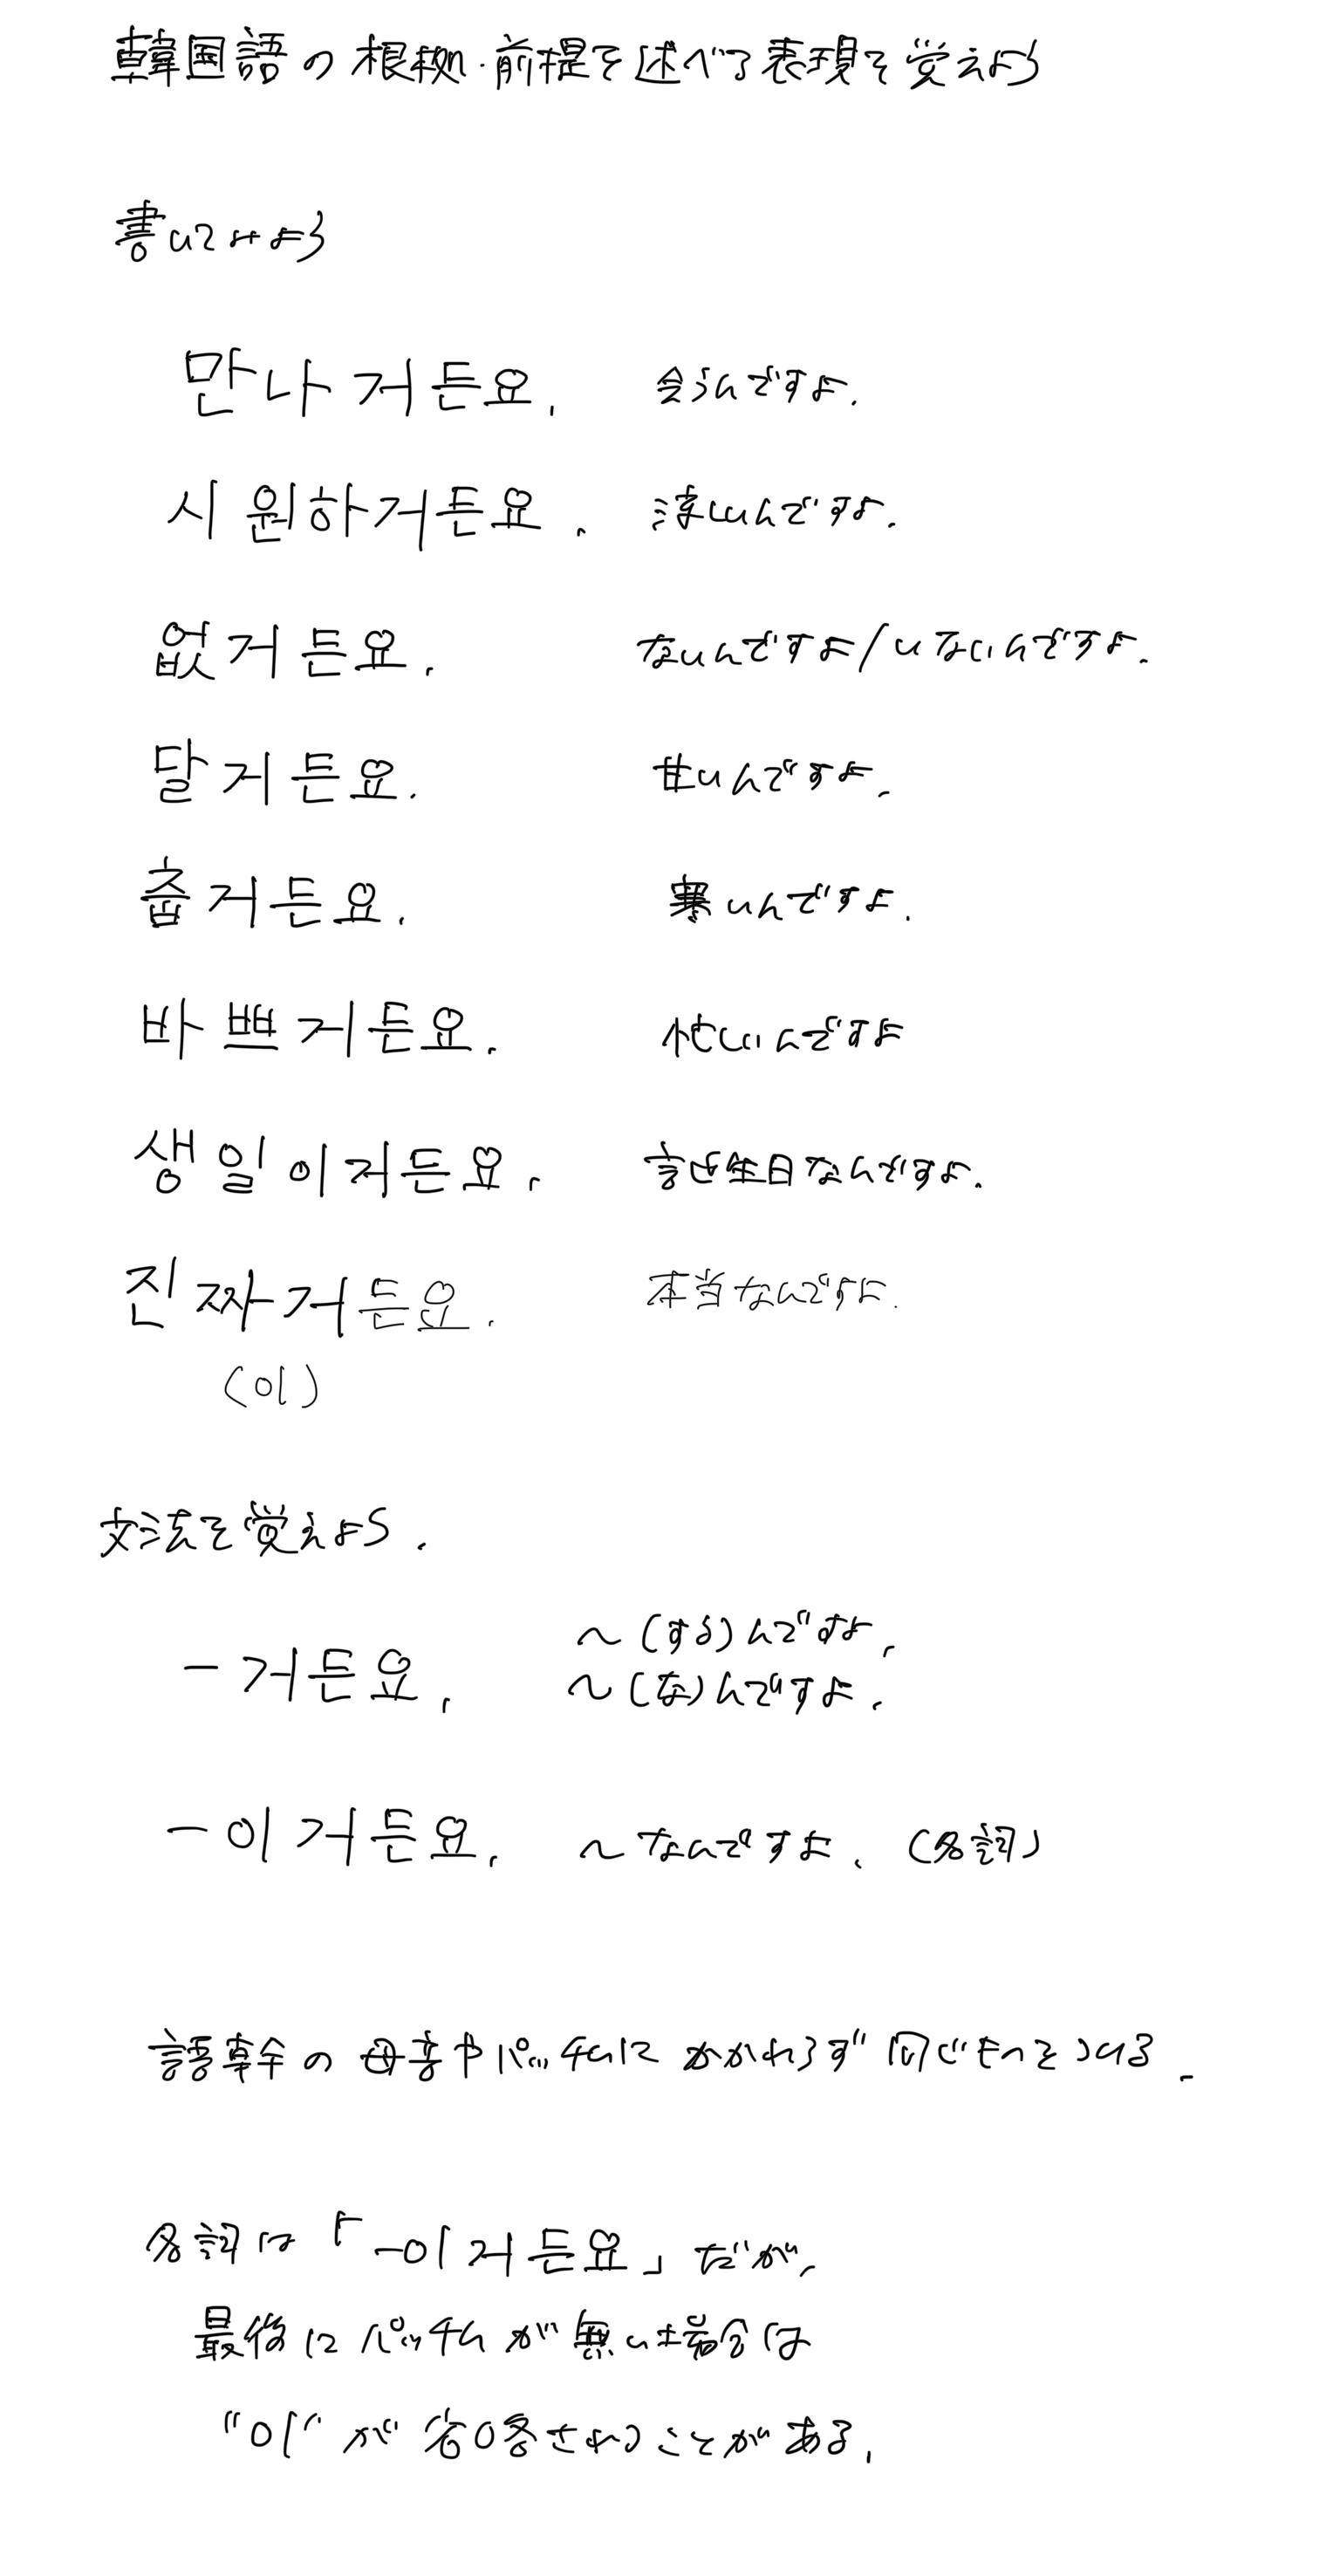 韓国語の根拠・前提を述べる表現を覚えよう
書いてみよう
만나거든요. 会うんですよ.
시원하거든요. 涼しいんですよ.
없거든요. ないんですよ/いないんですよ.
달거든요. 甘いんですよ.
춥거든요. 寒いんですよ.
바쁘거든요. 忙しいんですよ
생일이거든요. 誕生日なんですよ.
진짜거든요. 本当なんですよ.
(이)
文法を覚えよう.
-거든요. ~(する)んですよ.
~(な)んですよ.
-이거든요. ~なんですよ. (名詞)
語幹の母音やパッチムにかかわらず同じものをつける.
名詞は「-이거든요」だが,
最後にパッチムが無い場合は
"이"が省略されることがある.